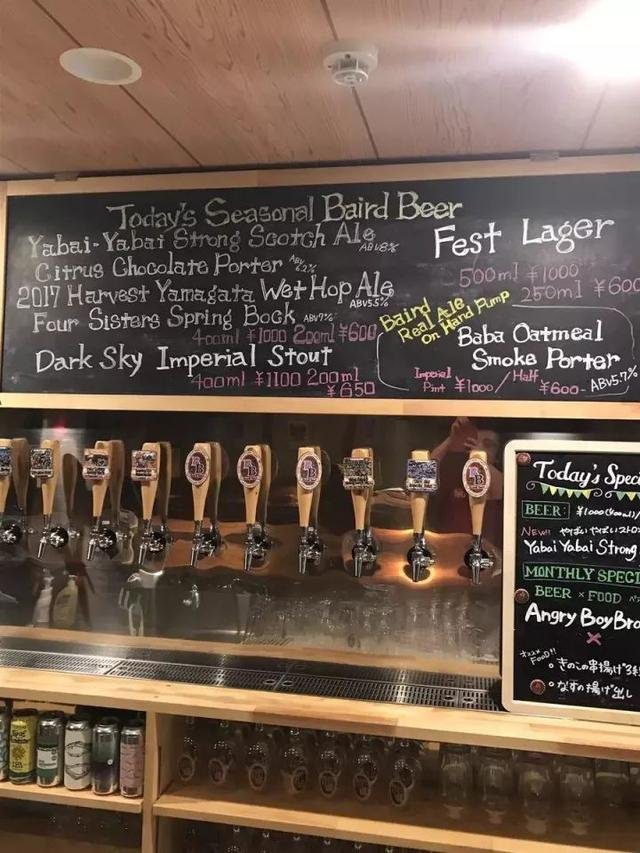 Today's Seasonal Baird Beer
Yabai-Yabai Strong Scotch Ale ABV8%
Citrus Chocolate Porter ABV 6.2%
2017 Harvest Yamagata Wet Hop Ale ABV5.5%
Four Sisters Spring Bock ABV7%
400ml ¥1000 200ml ¥600
Dark Sky Imperial Stout
400ml ¥1100 200ml ¥650
Fest Lager
500ml ¥1000
250ml ¥600
Baird
Real Ale
on Hand Pump
Baba Oatmeal
Smoke Porter
Imperial Pint ¥1000 / Half ¥600- ABV5.7%
Today's Speci
BEER: ¥1000(400ml)/
NEW!! やばいやばいストロ
Yabai Yabai Strong
MONTHLY SPECI
BEER × FOOD
Angry Boy Bro
×
オススメ FOOD!!
きのこの串揚げ3
なすの揚げ出し